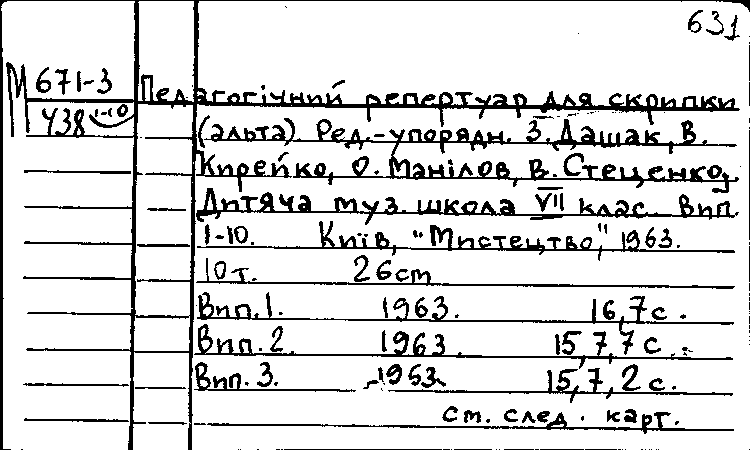 631
М 671-3
438 1-10
Педагогічний репертуар для скрипки
(альта). Ред.-упорядн. З. Дашак, В.
Кирейко, О. Манілов, В. Стеценко,
Дитяча муз. школа VII клас. Вип.
1-10. Київ, "Мистецтво", 1963.
10 т. 26 cm
Вип. 1. 1963. 16,7 с.
Вип. 2. 1963. 15,7,7 с.
Вип. 3. 1963. 15,7,2 с.
см. след. карт.